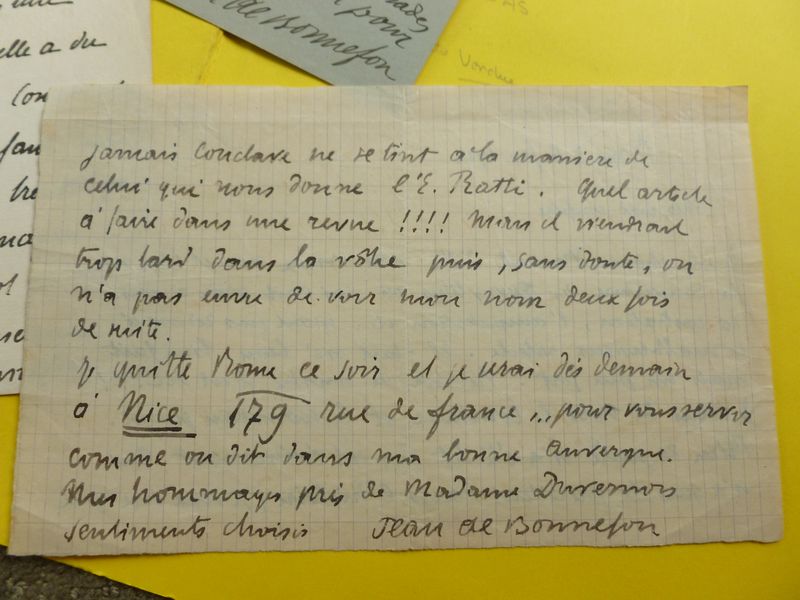 elle a du
ades
pour
de Bonnefon
Vendu
Jamais Conclave ne se tint à la maniere de
celui qui nous donne l'E. Ratti. Quel article
à faire dans une revue !!!! Mais il viendrait
trop tard dans la vôtre puis, sans doute, on
n'a pas envie de voir mon nom deux fois
de suite.
Je quitte Rome ce soir et je serai dès demain
à Nice 179 rue de france ... pour vous servir
comme on dit dans ma bonne Auvergne.
Mes hommages près de Madame Duvernois
sentiments choisis Jean de Bonnefon